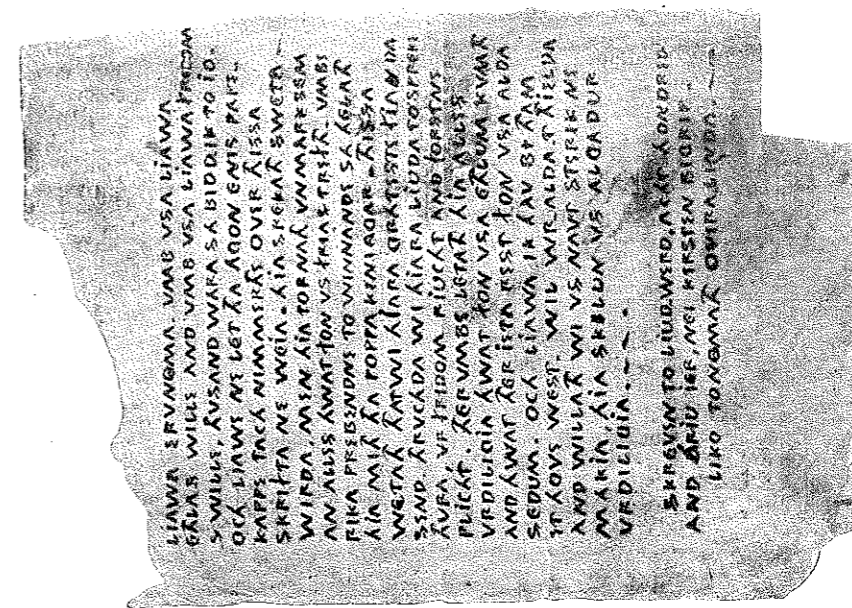 LJAWA ERVNOMA. VMB VSA LJAWA
ETHLAS WILLE AND VMB VSA LJAWA FRIDOM
S WILLE, THUSAND WARA SA BIDDIK TO IO.
OCH LJAWE NE LET THA AGON ENIS PAPE-
KAPPE TACH NIMMERTHE OVER THISSA
SKRIFTA NE WEIA. HIA SPEKATH SWETA
WIRDA. MEN HIA TORNATH VNMARKSEM
AN ALLES HWAT FON VS FRYAS TREFTH. VMBE
RIKA PREBENDNE TO WINNANDE SA HELATH
HIA MITH THA POPPA KENINGGAR. THISSA
WETATH THAT WI HIARA GRATESTE FIANDA
SEND THRVCHDA WI HIARA LIUDA TO SPREKE
THURA, VR FRIDOM RIUCHT AND FORSTNE
PLICHT. THERVMBE LETATH HIA ALLES
VRDILIGIA HWAT FON VSA ETHLUM KVMATH
AND HWAT THER IETA REST FON VSA ALDA
SEDUM. OCH LJAWA IK HAV BY THAM
ET HOVE WEST. WIL WR.ALDA.T THIELDA
AND WILLATH WI VS NAVT STERIK NE
MAKIA, HIA SKILUN VS ALGADUR
VRDILIGIA.
SKREVEN TO LIUDWERD, ACHT HONDRED
AND THRIU IER, NEI KERSTEN BIGRIP.
LIKO TONOMATH OVIRALINDA.